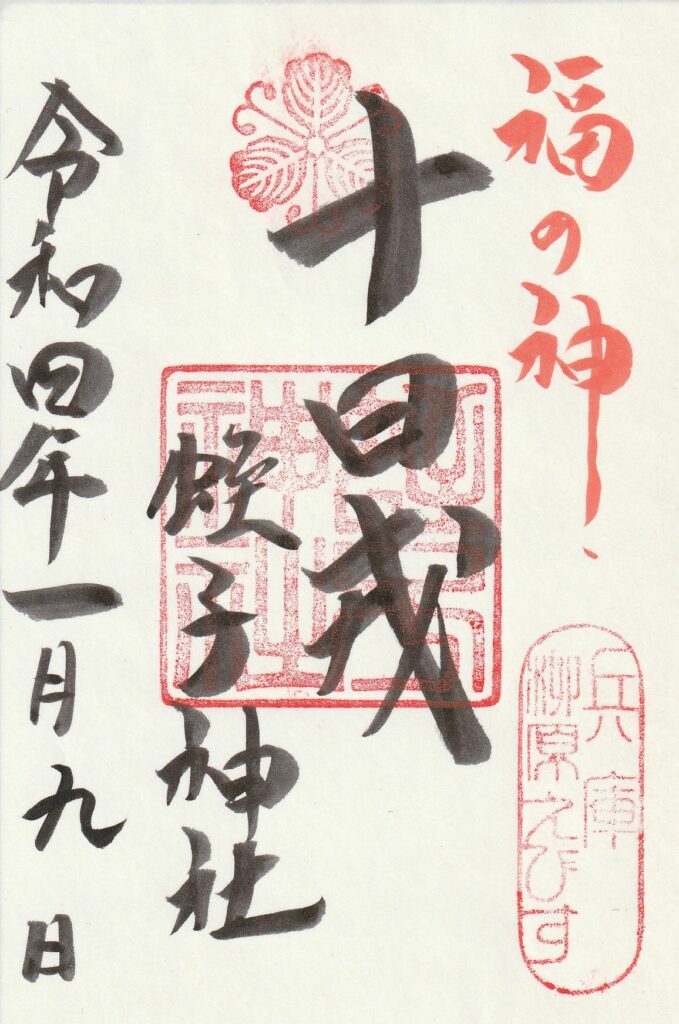 福の神
兵庫
柳原えびす
十日戎
蛭子神社
令和四年一月九日